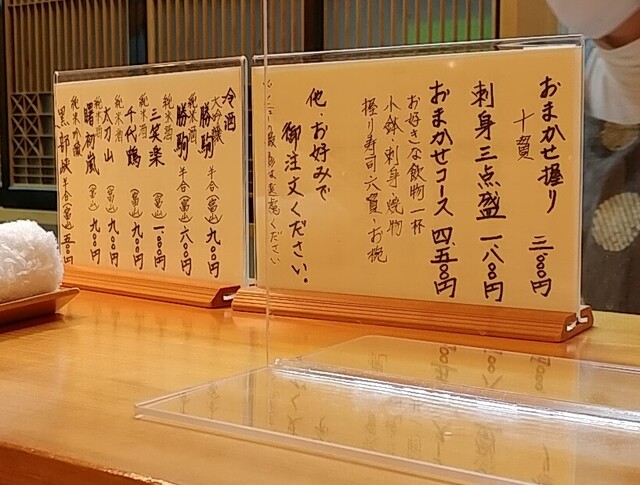 おまかせ握り 三、〇〇〇円
十貫
刺身三点盛 一、八〇〇円
おまかせコース 四、五〇〇円
お好きな飲物一杯
小鉢 刺身 焼物
握り寿司六貫・お椀
他、お好みで
御注文ください。
冷酒
大吟醸 勝駒 半合(富山)九〇〇円
純米酒 勝駒 半合(富山)六〇〇円
純米酒 三笑楽(富山)一、〇〇〇円
純米酒 千代鶴(富山)九〇〇円
純米酒 太刀山(富山)九〇〇円
純米酒 曙初嵐(富山)九〇〇円
純米吟醸 黒部峡 半合(富山)五〇〇円